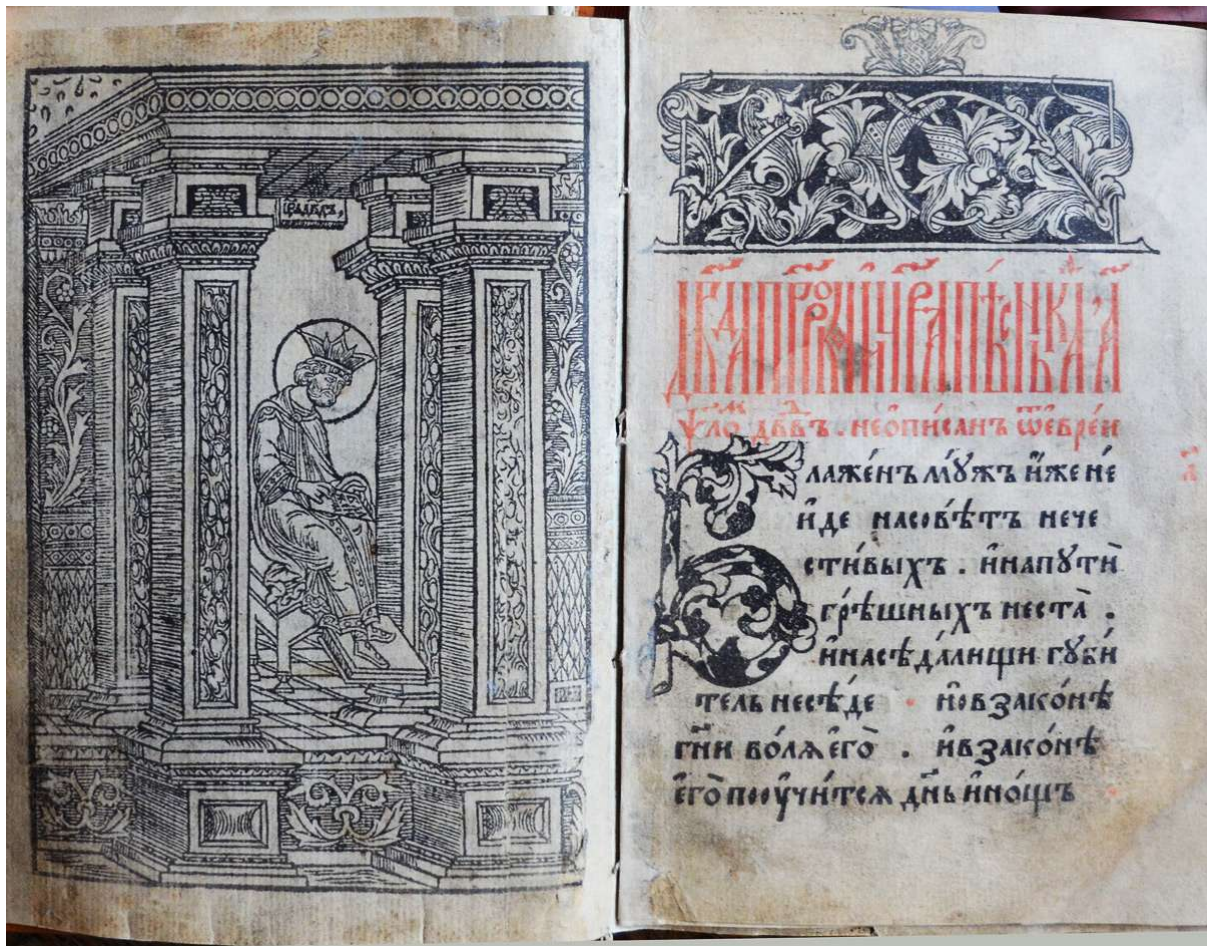 цр҃ь дв҃дъ
дв҃да прⷪ҇рка и цр҃ѧ пѣснь, а҃
ѱало́мъ дв҃дъ . не ѻпи́санъ ѿ є҆врє́и
Блаже́нъ мꙋ́жъ и҆́же не
и҆́де на совѣ́тъ нече
сти́выхъ . и҆ на пꙋти̑
грѣ́шныхъ не ста̀ .
и҆ на сѣда́лищи гꙋби́
тель не сѣ́де . но в зако́нѣ
гн҃и во́лѧ є҆гѡ̀ . и҆ в зако́нѣ
є҆гѡ̀ поꙋчи́тсѧ дн҃ь и҆ но́щь